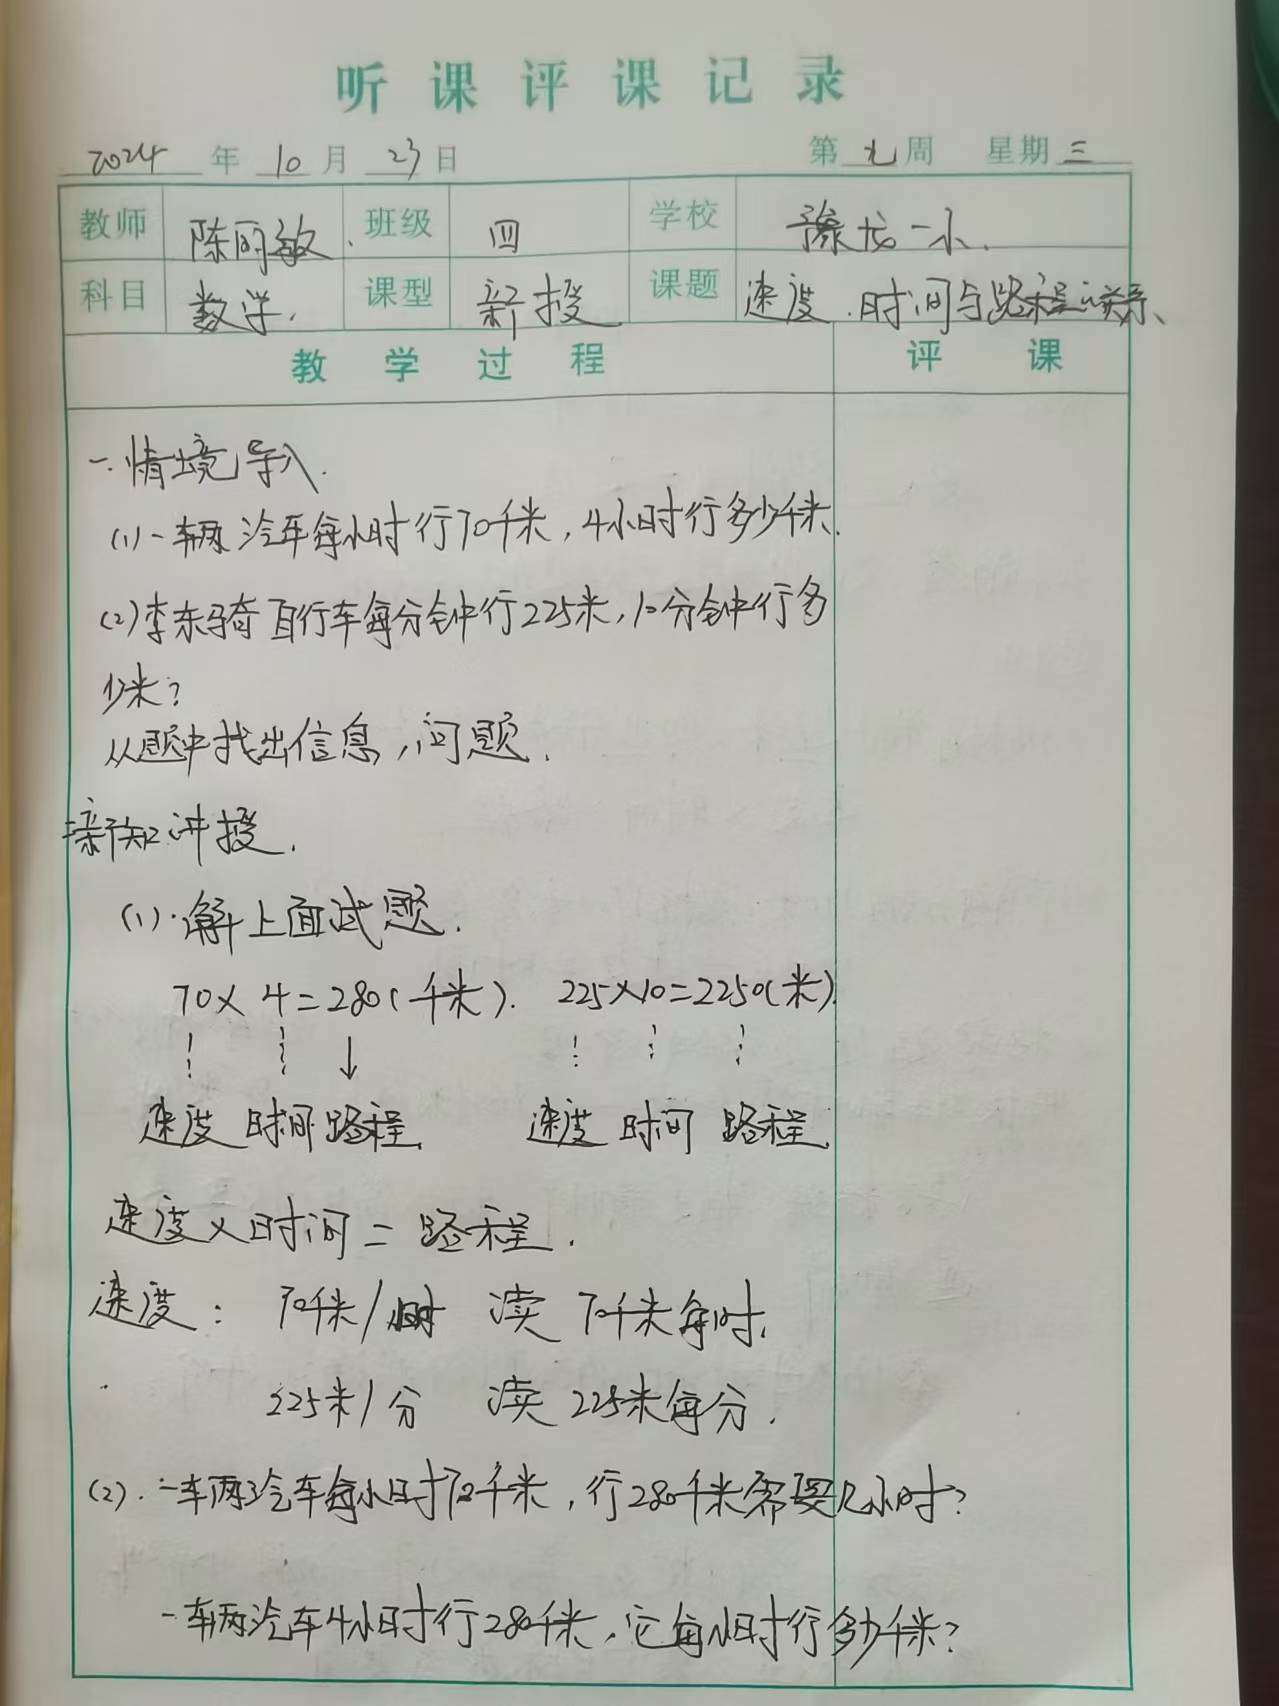 听课评课记录
2024年10月23日 第九周 星期三
教师 陈丽敏 班级 四 学校 豫龙一小
科目 数学 课型 新授 课题 速度、时间与路程的关系
教学过程 评课
一.情境导入.
(1)一辆汽车每小时行70千米,4小时行多少千米.
(2)李东骑自行车每分钟行225米,10分钟行多
少米?
从题中找出信息,问题.
二新知讲授.
(1).解上面试题.
70×4=280(千米). 225×10=2250(米)
速度 时间 路程. 速度 时间 路程.
速度×时间=路程.
速度: 70千米/小时 读 70千米每时.
225米/分 读 225米每分.
(2).一辆汽车每小时70千米,行280千米需要几小时?
一辆汽车4小时行280千米,它每小时行多少千米?